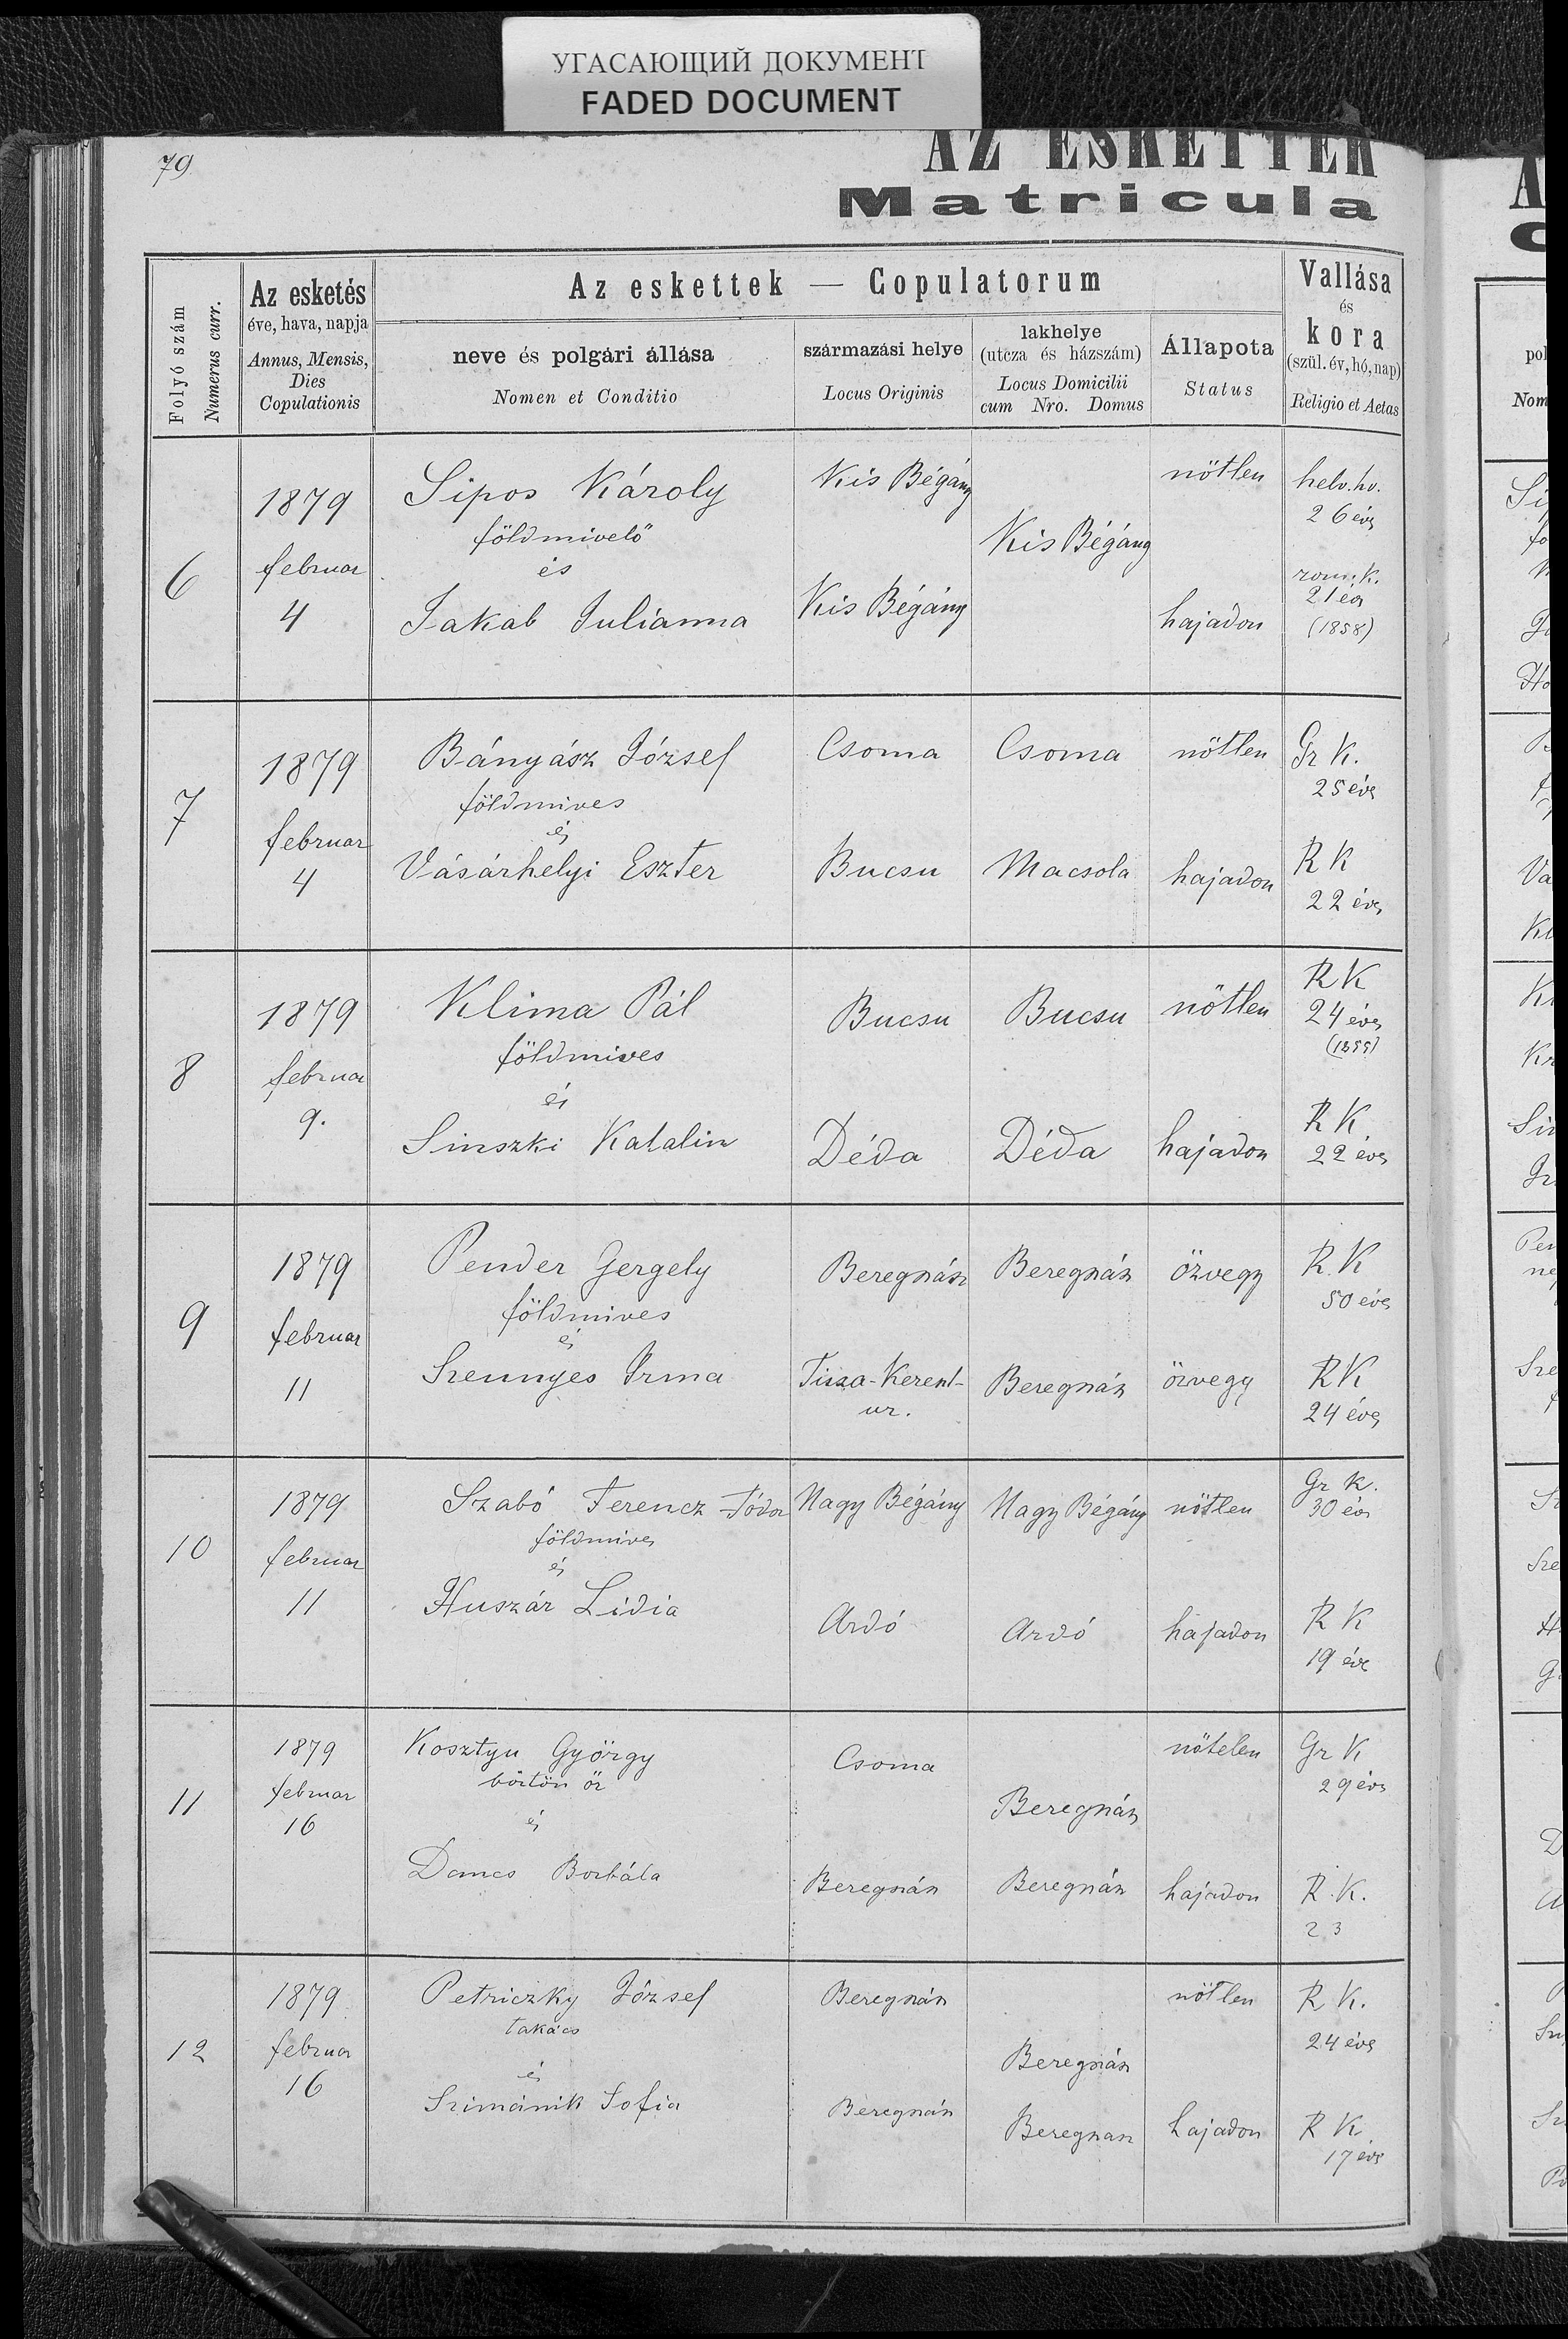 УГАСАЮЩИЙ ДОКУМЕНТ
FADED DOCUMENT
79
AZ ESKETTEK
Matricula
Folyó szám
Numerus curr.
Az esketés
éve, hava, napja
Annus, Mensis,
Dies
Copulationis
Az eskettek — Copulatorum
neve és polgári állása
Nomen et Conditio
származási helye
Locus Originis
lakhelye
(utcza és házszám)
Locus Domicilii
cum Nro. Domus
Állapota
Status
Vallása
és
kora
(szül. év, hó, nap)
Religio et Aetas
6
1879
februar
4
Sipos Károly
földmivelő
és
Jakab Julianna
Kis Bégány
Kis Bégány
Kis Bégány
nőtlen
hajadon
helv. hv.
26 éves
rom. k.
21 éves
(1858)
7
1879
februar
4
Bányász József
földmives
és
Vásárhelyi Eszter
Csoma
Bucsu
Csoma
Macsola
nőtlen
hajadon
Gr K.
25 éves
R K
22 éves
8
1879
februar
9.
Klima Pál
földmives
és
Sinszki Katalin
Bucsu
Déda
Bucsu
Déda
nőtlen
hajadon
R K
24 éves
(1855)
R K
22 éves
9
1879
februar
11
Pender Gergely
földmives
és
Szennyes Irma
Beregszász
Tisza-Kereszt-
ur.
Beregszász
Beregszász
özvegy
özvegy
R K
50 éves
R K
24 éves
10
1879
februar
11
Szabó Ferencz Tódor
földmives
és
Huszár Lidia
Nagy Bégány
Ardó
Nagy Bégány
Ardó
nőtlen
hajadon
Gr K.
30 éves
R K
19 éves
11
1879
februar
16
Kosztyu György
börtön őr
és
Borbála
Csoma
Beregszász
Beregszász
Beregszász
nőtelen
hajadon
Gr K
29 éves
R. K.
23
12
1879
februar
16
Petriczky József
takács
és
Szimánik Sofia
Beregszász
Beregszász
Beregszász
Beregszász
nőtlen
hajadon
R K.
24 éves
R K
17 éves